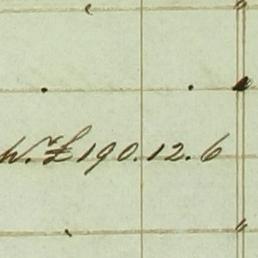 £190.12.6